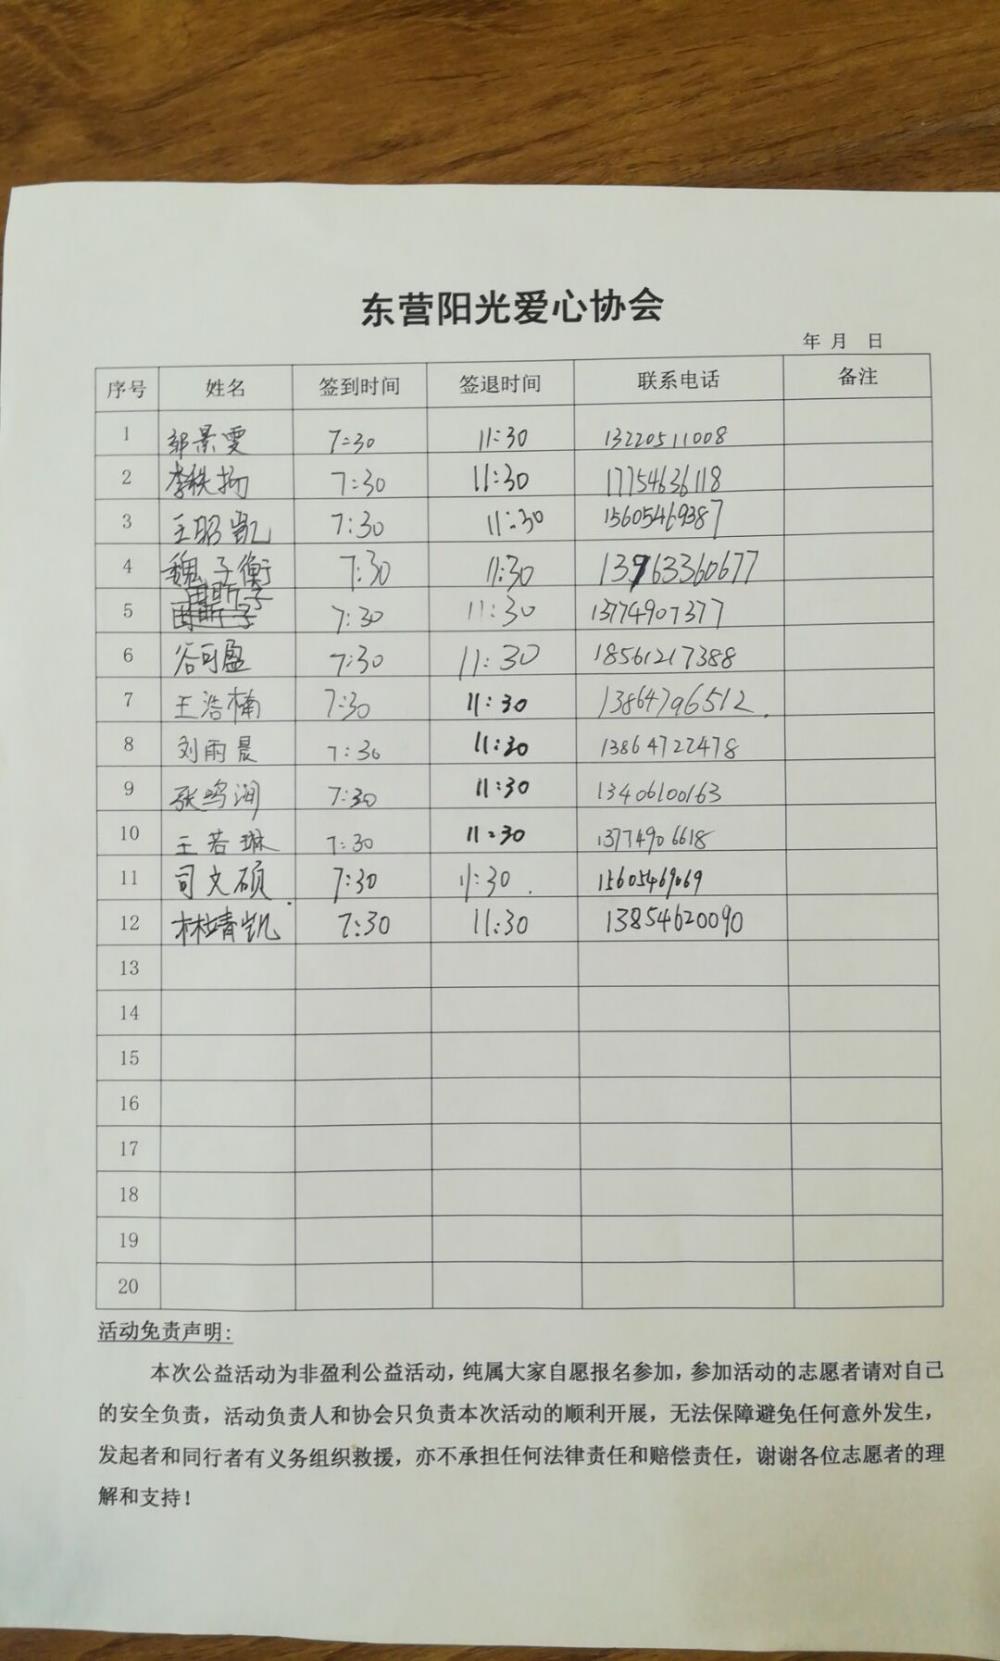 东营阳光爱心协会
年 月 日
序号 姓名 签到时间 签退时间 联系电话 备注
1 郭景雯 7:30 11:30 13220511008
2 李轶扬 7:30 11:30 17754636118
3 王昭凯 7:30 11:30 15605469387
4 魏子衡 7:30 11:30 13963360677
5 7:30 11:30 13774907377
6 谷可盈 7:30 11:30 18561217388
7 王浩楠 7:30 11:30 13864796512
8 刘雨晨 7:30 11:30 13864722478
9 张鸣润 7:30 11:30 13406100163
10 王若琳 7:30 11:30 13774906618
11 司文硕 7:30 11:30 15605469069
12 林靖凯 7:30 11:30 13854620090
13
14
15
16
17
18
19
20
活动免责声明:
本次公益活动为非盈利公益活动，纯属大家自愿报名参加，参加活动的志愿者请对自己
的安全负责，活动负责人和协会只负责本次活动的顺利开展，无法保障避免任何意外发生，
发起者和同行者有义务组织救援，亦不承担任何法律责任和赔偿责任，谢谢各位志愿者的理
解和支持！